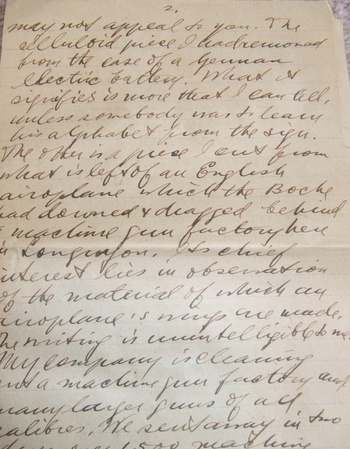 2.
may not appeal to you. The
celluloid piece I had removed
from the case of a German
electric battery. What it
signifies is more that I can tell,
unless somebody was to learn
his alphabet from the sign.
The other is a piece I cut from
what is left of an English
airoplane which the Boche
had downed & dragged behind
a machine gun factory here
in Longuyon. Its chief
interest lies in observation
of the material of which an
airoplane's wings are made.
The writing is unintelligible to me.
My company is cleaning
out a machine gun factory and
many larger guns of all
calibres. We sent away in two
1,500 machine